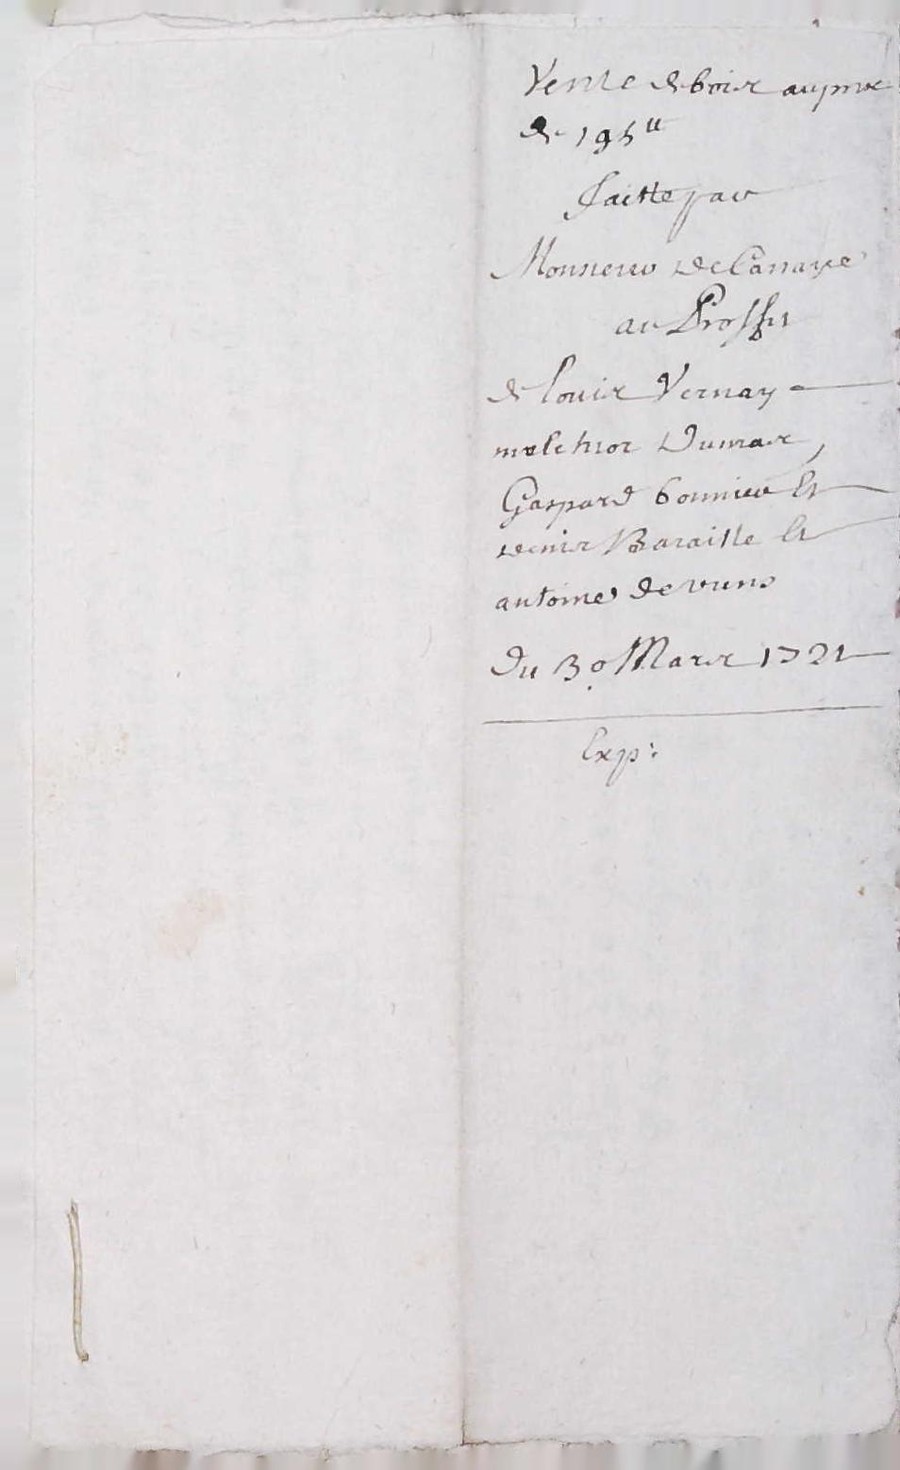 Vente de bois au prix
de 195ʰᵗ
faitte par
Monsieur de Canaye
au Proffit
de louis Vernay
melchior Dumas,
Gaspard bonnier Et
denis Baraille Et
antoine
du 30 Mars 1721
Exp: